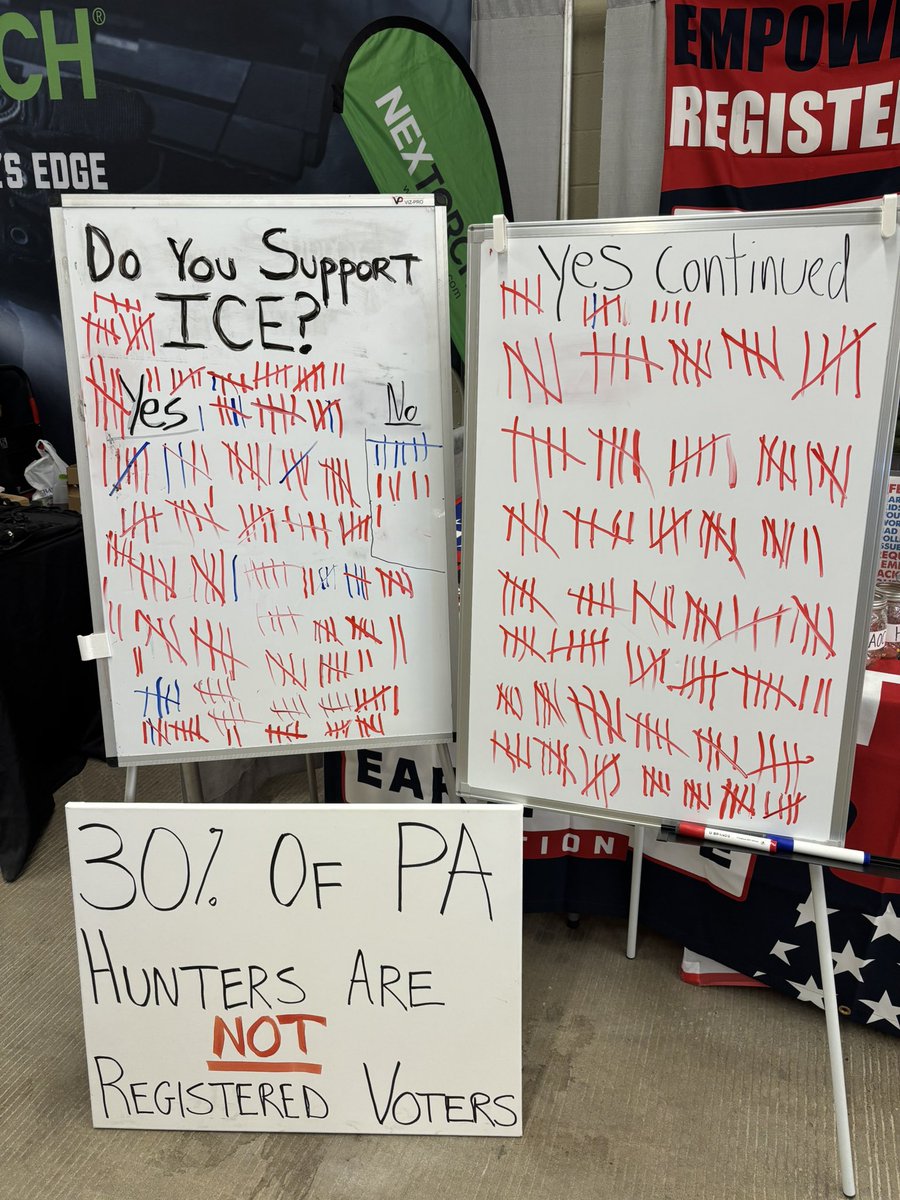 CH®
S EDGE
NEXTORCH
.com
EMPOW
REGISTE
VIZ-PRO
Do You Support
ICE?
Yes
No
Yes Continued
EAR
TION
30% OF PA
HUNTERS ARE
NOT
REGISTERED VOTERS